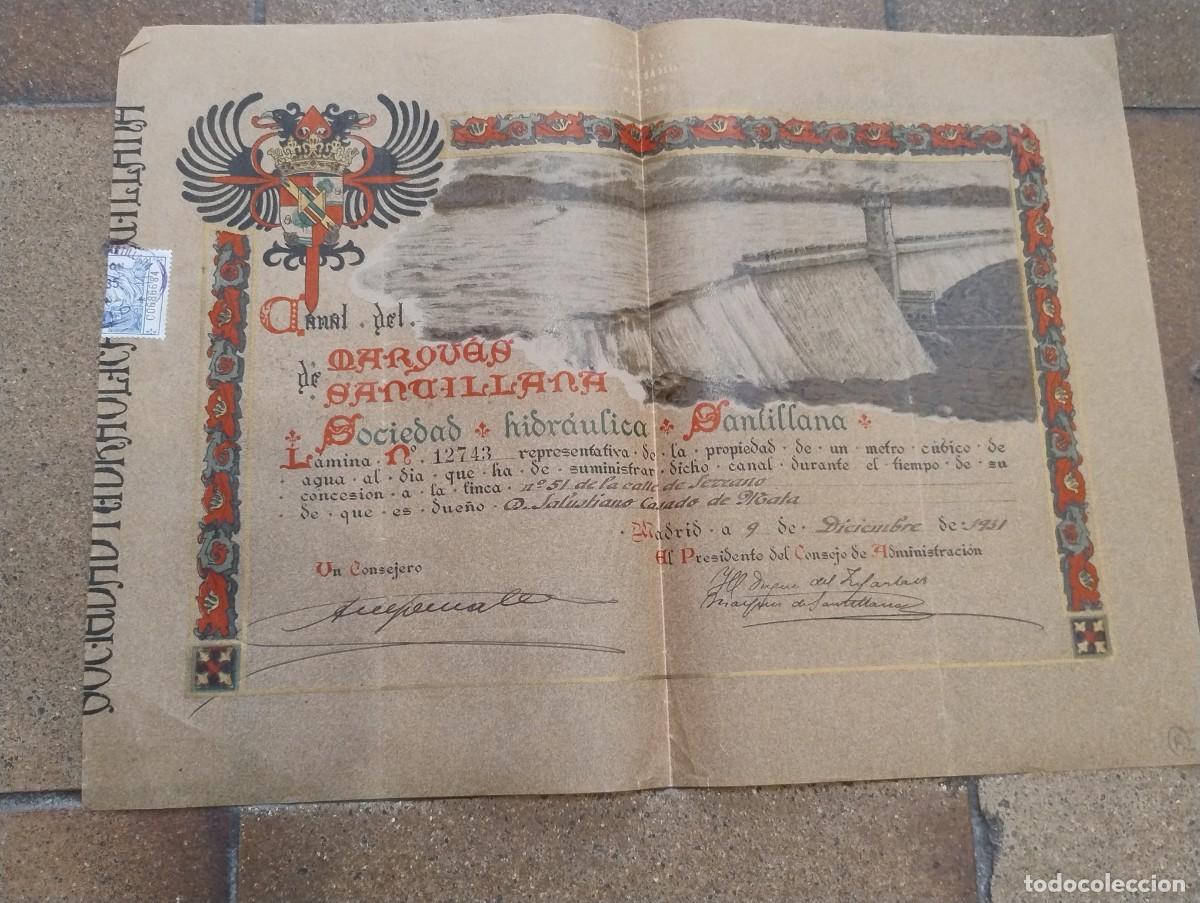 Canal · del ·
de · MARQVÉS
SANTILLANA
Sociedad hidráulica Santillana
Lámina · Nº. 12743 representativa · de · la · propiedad · de · un · metro · cúbico · de
agua · al · dia · que · ha · de · suministrar · dicho · canal · durante · el · tiempo · de · su
concesion · a · la · finca · nº 51 de la calle de Serrano
de · que · es · dueño · D. Salustiano Casado de Mata
· Madrid · a 9 de · Diciembre de · 1931
Un Consejero
El Presidente del Consejo de Administración
El Duque del Infantado
Marqués de Santillana
SOCIEDAD HIDRAULICA SANTILLANA
00686684
todocoleccion